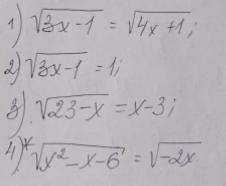 1) √(3x-1) = √(4x+1);
2) √(3x-1) = 1;
3) √(23-x) = x-3;
4)* √(x²-x-6) = √(-2x)